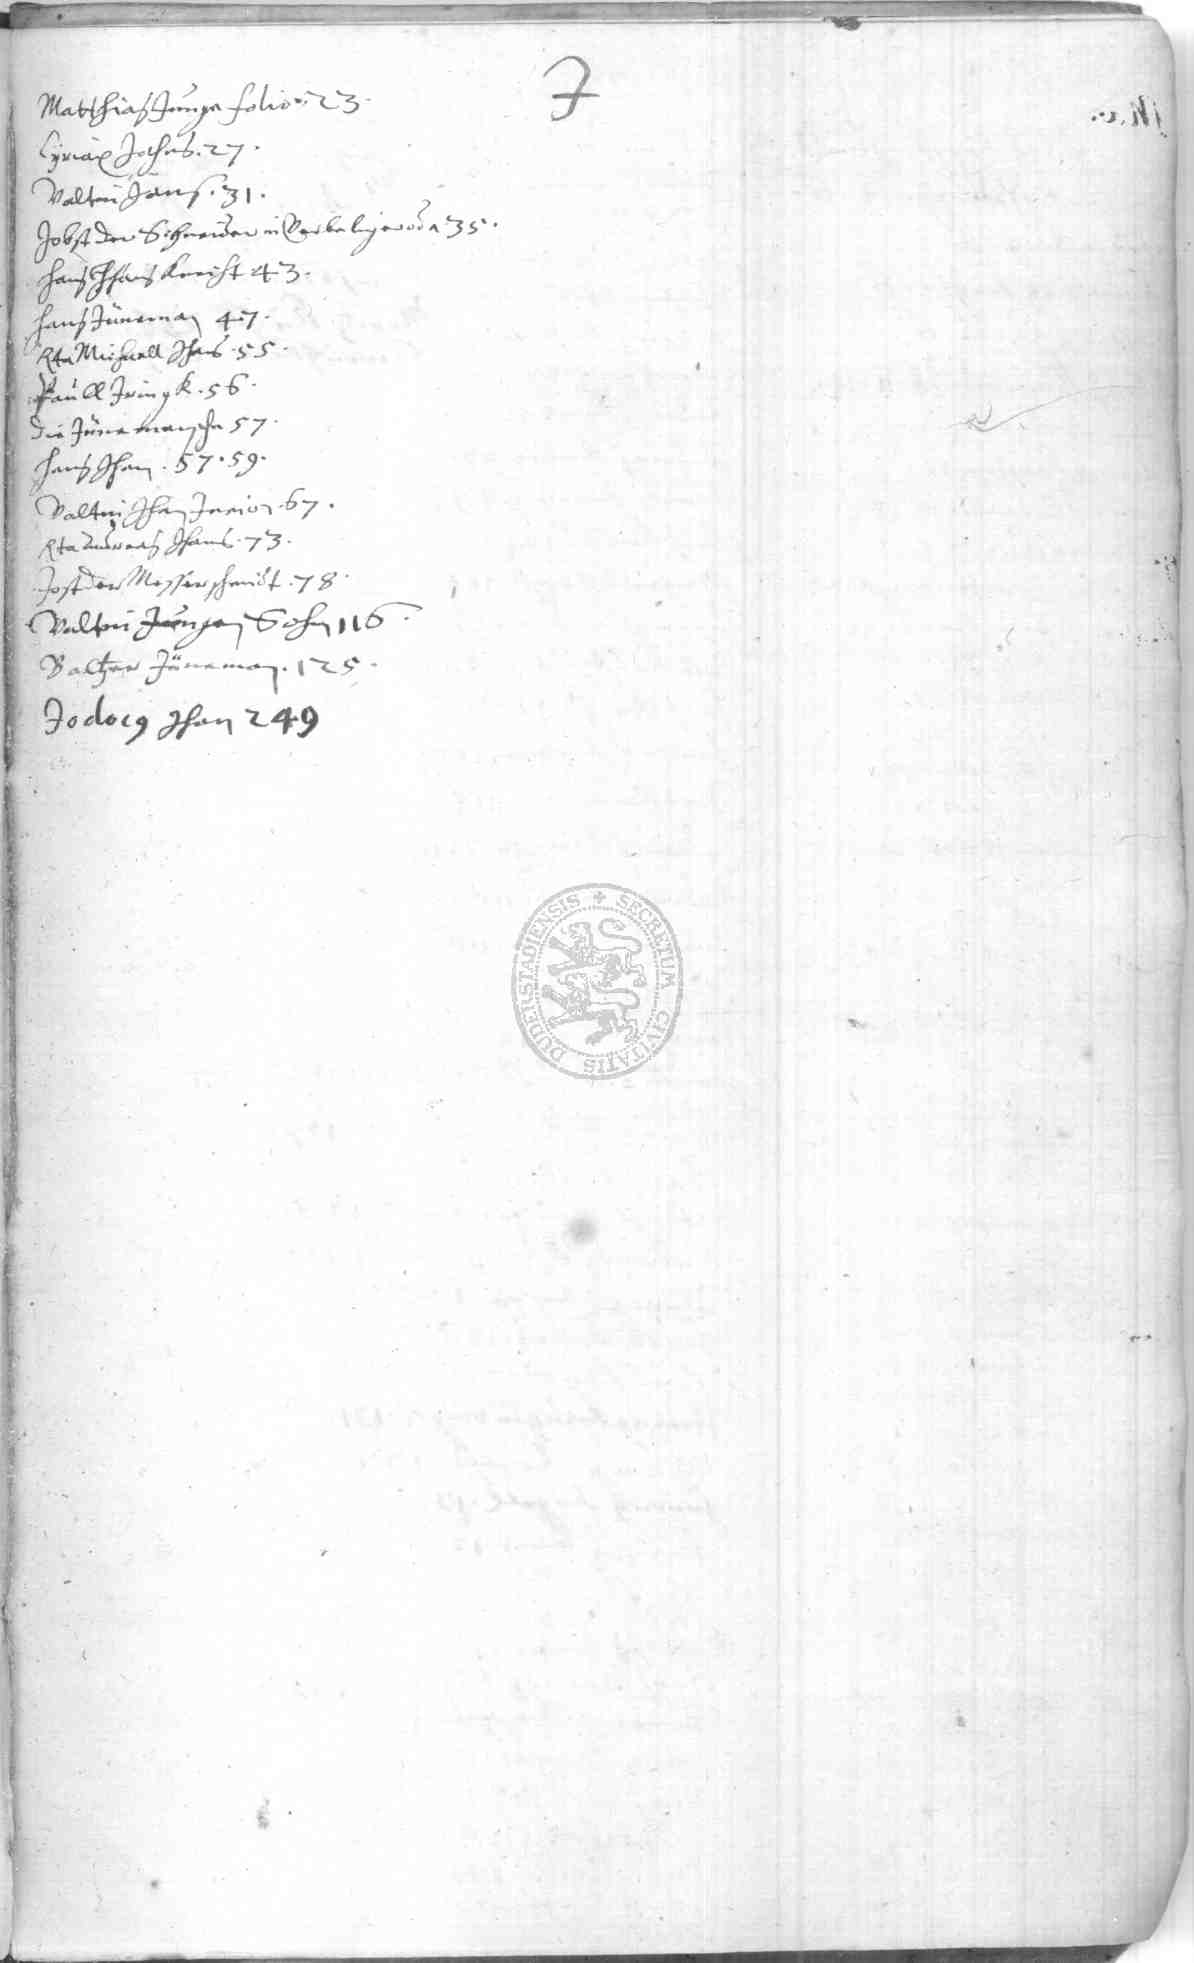 J
Matthias Junge folio. 23.
Cyriax Jothes. 27.
Valtin Jans. 31.
Jobst der Schneider in Berkelingeroda 35.
Hans Hans Knecht 43.
Hans Jüneman 47.
Rta Michaell Jhans. 55.
Paull Iringk. 56.
die Jünemansche 57.
Hans Jhan. 57. 59.
Valtin Jhan Junior. 67.
Rta Andreas Jhans. 73.
Jost der Messerschmidt. 78.
Valtin Jungen Sohn 116.
Baltzer Jüneman. 125.
Jodocus Jhan 249
SECRETUM CIVITATIS DUDERSTADIENSIS